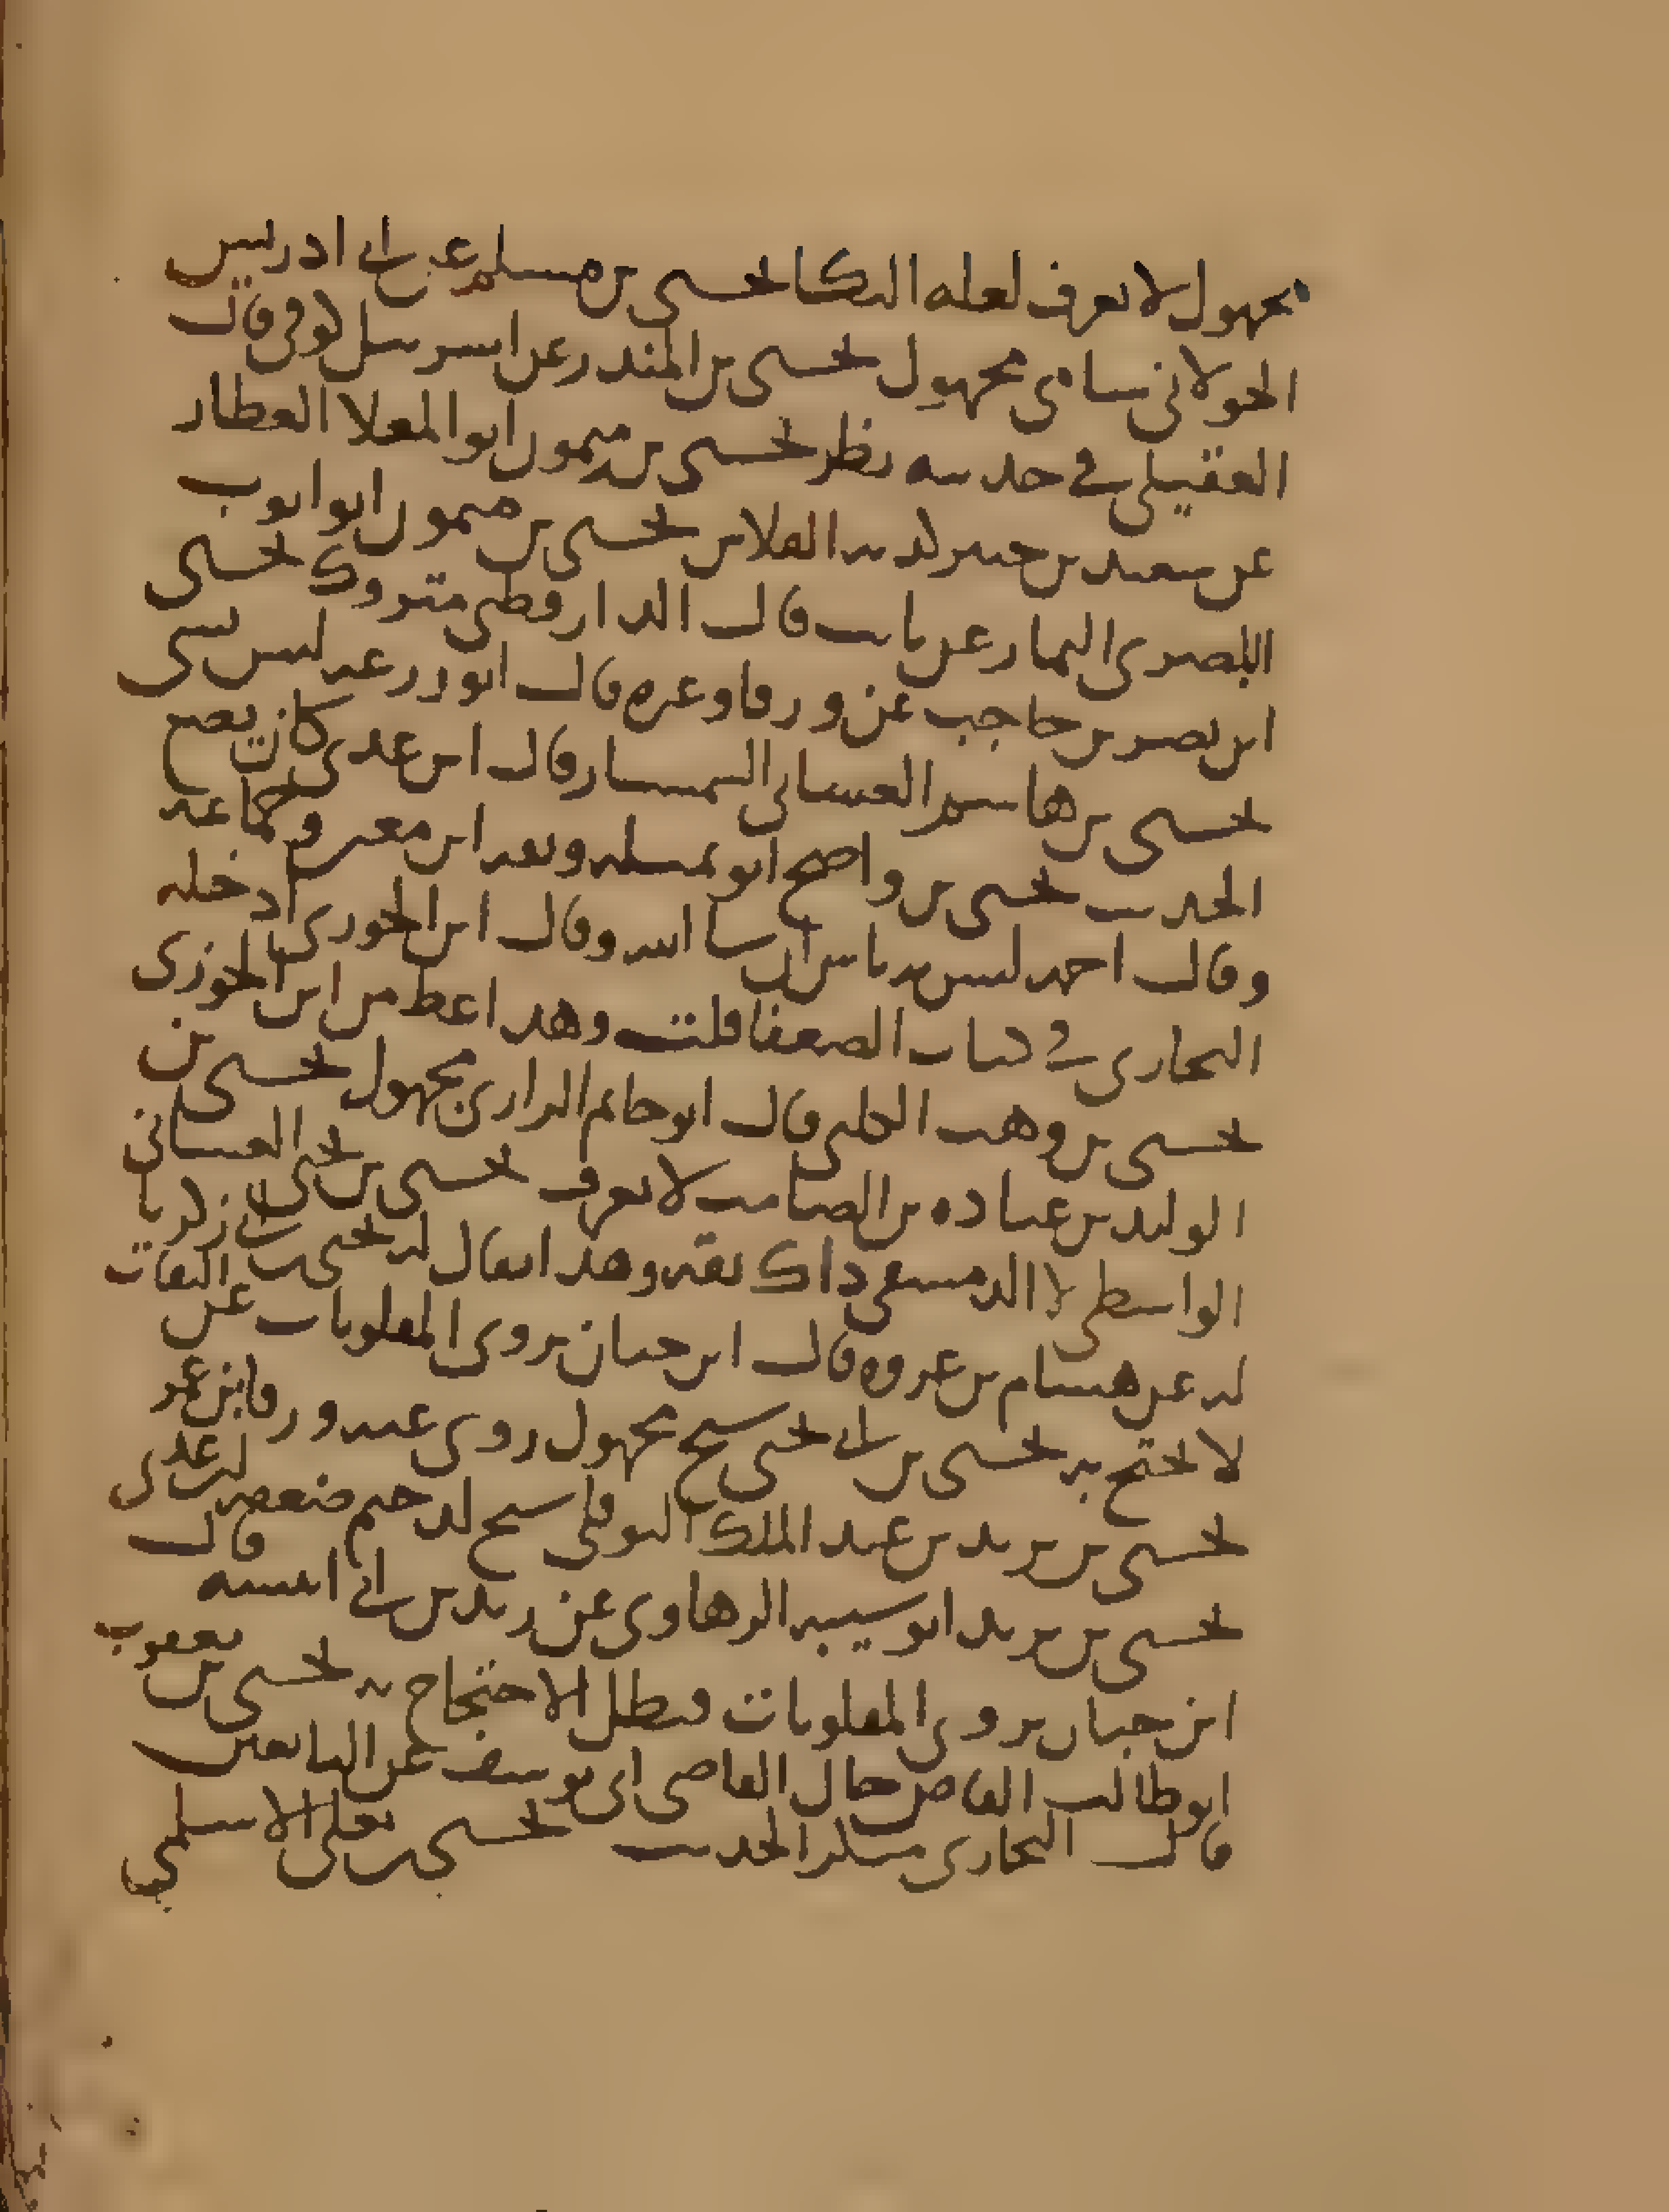 مجهول لا يعرف لعله البكا يحيى بن مسلم عن ابي ادريس
الخولاني شامي مجهول يحيى بن المنذر عن اسرائيل كوفي قال
العقيلي في حديثه نظر يحيى بن ميمون ابو المعلا العطار
عن سعيد بن جبير كذبه الفلاس يحيى بن ميمون ابو ايوب
البصري التمار عن ثابت قال الدارقطني متروك يحيى
ابن نصر بن حاجب عن ورقا وغيره قال ابو زرعه ليس بشي
يحيى بن هاشم الغساني السمسار قال ابن عدي كان يضع
الحديث يحيى بن واضح ابو تميله وثقه ابن معين وجماعه
وقال احمد ليس به باس ان شا الله وقال ابن الجوزي ادخله
البخاري في كتاب الضعفا قلت وهذا غلط من ابن الجوزي
يحيى بن وهب الكلبي قال ابو حاتم الرازي مجهول يحيى بن
الوليد بن عباده بن الصامت لا يعرف يحيى بن يحيى الغساني
الواسطي لا الدمشقي ذاك ثقه وهذا يقال له يحيى بن ابي زكريا
له عن هشام بن عروه قال ابن حبان يروي المقلوبات عن الثقات
لا يحتج به يحيى بن ابي يحيى شيخ مجهول روى عنه ورقا بن عمر
يحيى بن يزيد بن عبد الملك النوفلي شيخ لدحيم ضعفه ابن عدي
يحيى بن يزيد ابو شيبه الرهاوي عن زيد بن ابي انيسه قال
ابن حبان يروي المقلوبات فبطل الاحتجاج به يحيى بن يعقوب
ابو طالب القاص خال القاضي ابي يوسف عن التابعين
قال البخاري منكر الحديث يحيى بن يعلى الاسلمي